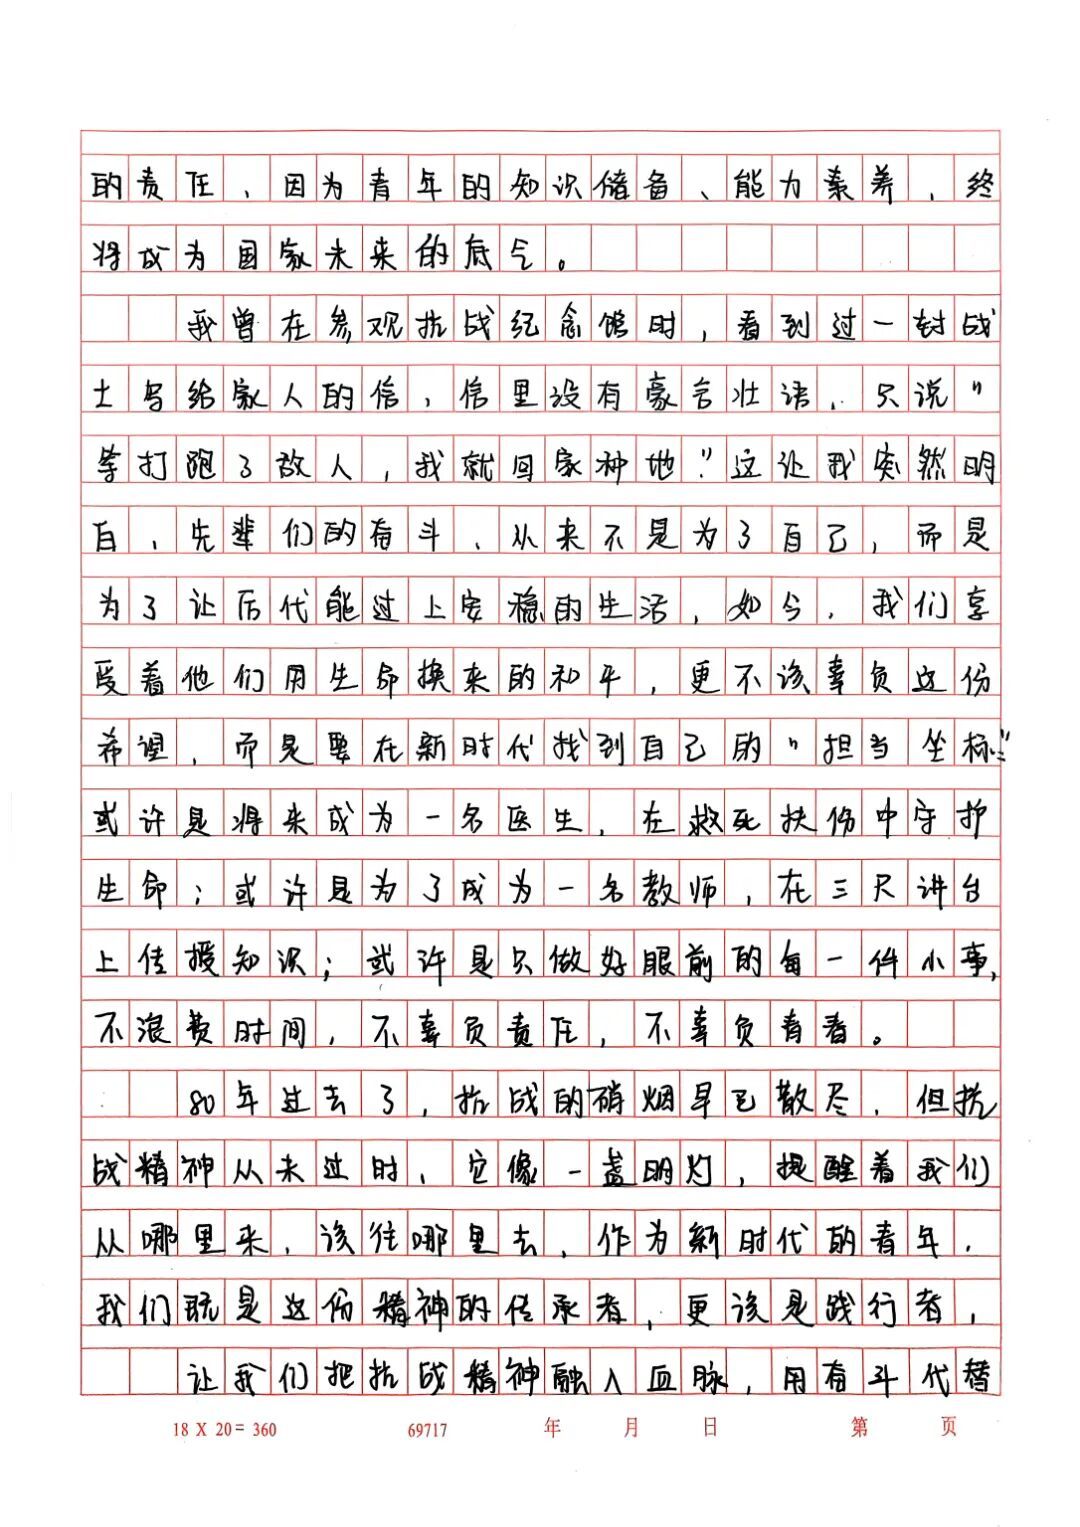 的责任，因为青年的知识储备、能力素养，终
将成为国家未来的底气。
我曾在参观抗战纪念馆时，看到过一封战
士写给家人的信，信里没有豪言壮语，只说"
等打跑了敌人，我就回家种地"。这让我突然明
白，先辈们的奋斗，从来不是为了自己，而是
为了让后代能过上安稳的生活，如今，我们享
受着他们用生命换来的和平，更不该辜负这份
希望，而是要在新时代找到自己的"担当坐标"：
或许是将来成为一名医生，在救死扶伤中守护
生命；或许是为了成为一名教师，在三尺讲台
上传授知识；或许是只做好眼前的每一件小事，
不浪费时间，不辜负责任，不辜负青春。
80年过去了，抗战的硝烟早已散尽，但抗
战精神从未过时，它像一盏明灯，提醒着我们
从哪里来，该往哪里去，作为新时代的青年，
我们既是这份精神的传承者，更该是践行者，
让我们把抗战精神融入血脉，用奋斗代替
18 X 20 = 360 69717 年 月 日 第 页